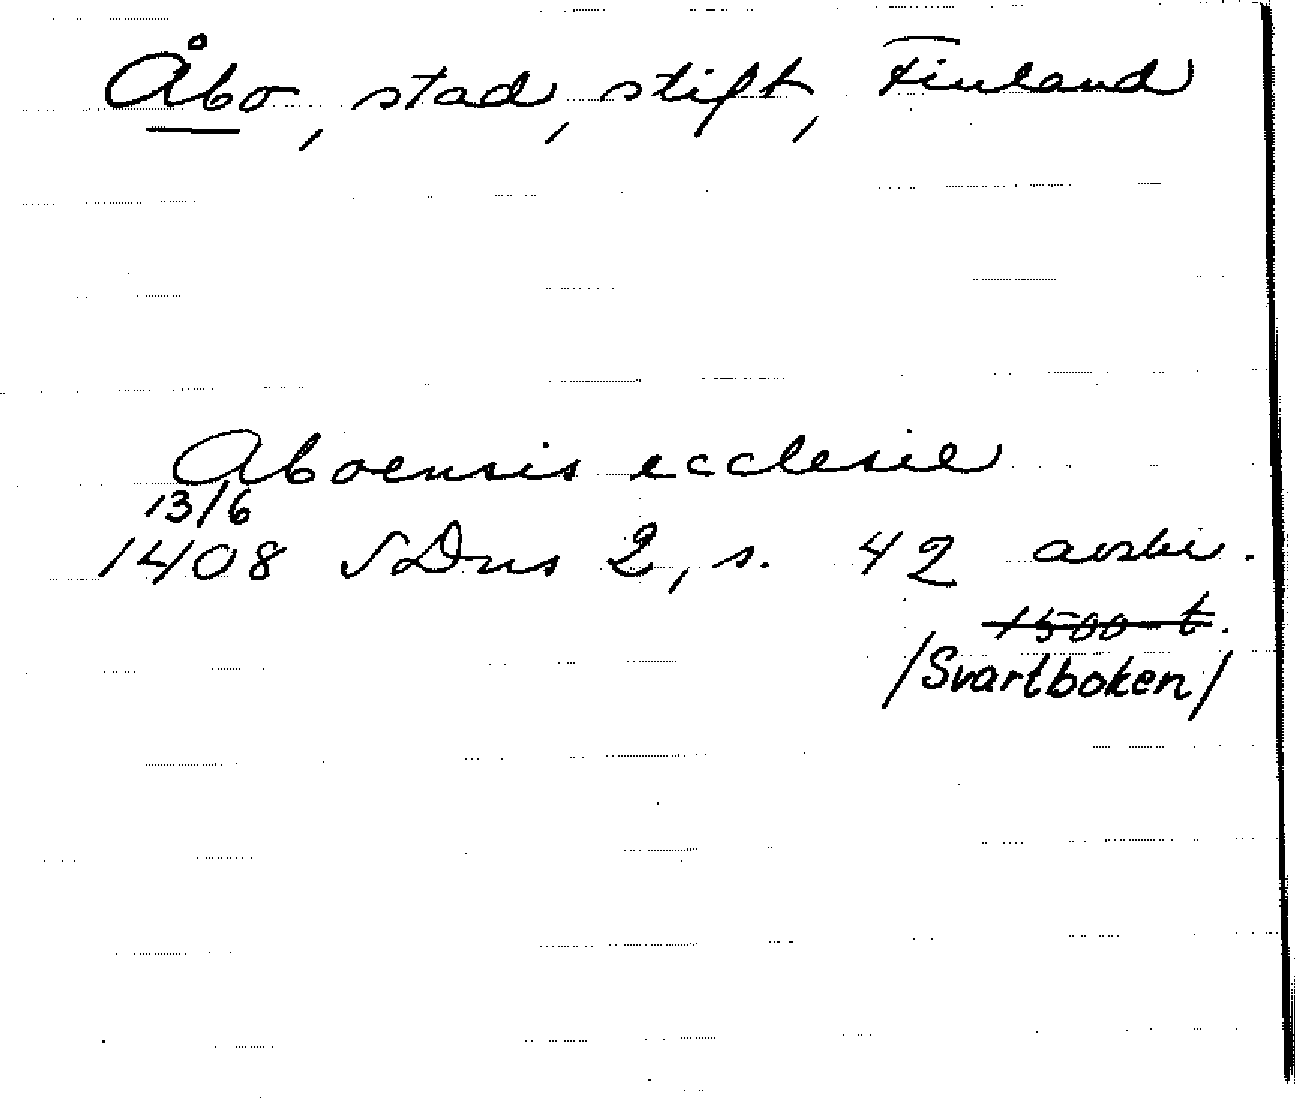 Åbo, stad, stift, Finland
Aboensis ecclesie
13/6
1408 SDns 2, s. 42 avskr.
1500-t.
/Svartboken/